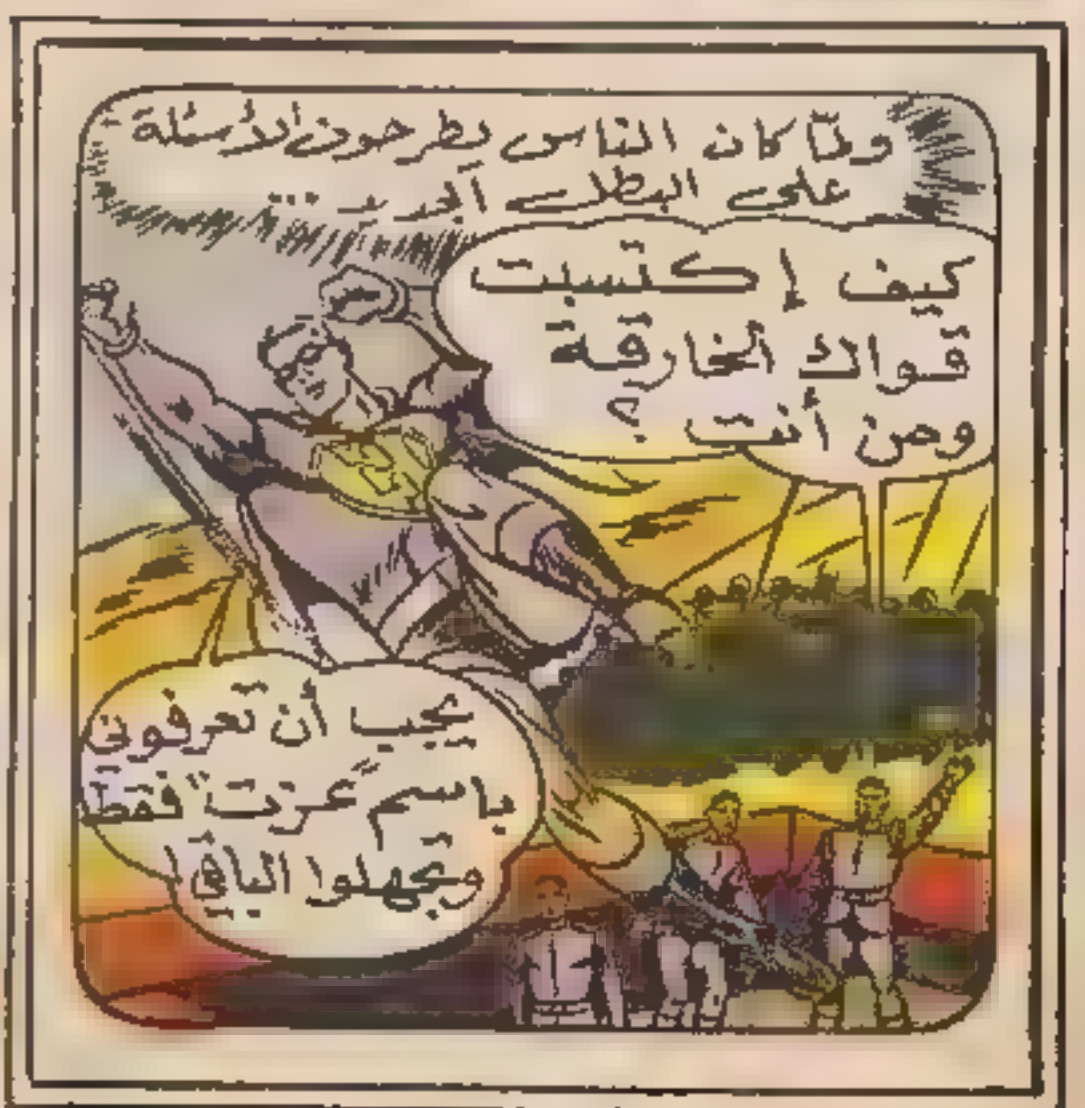 ولمّا كان الناس يطرحون الأسئلة
على البطل الجديد ...
كيف إكتسبت
قواك الخارقة
ومن أنت ؟
يجب أن تعرفوني
باسم "عزت" فقط
وتجهلوا الباقي!